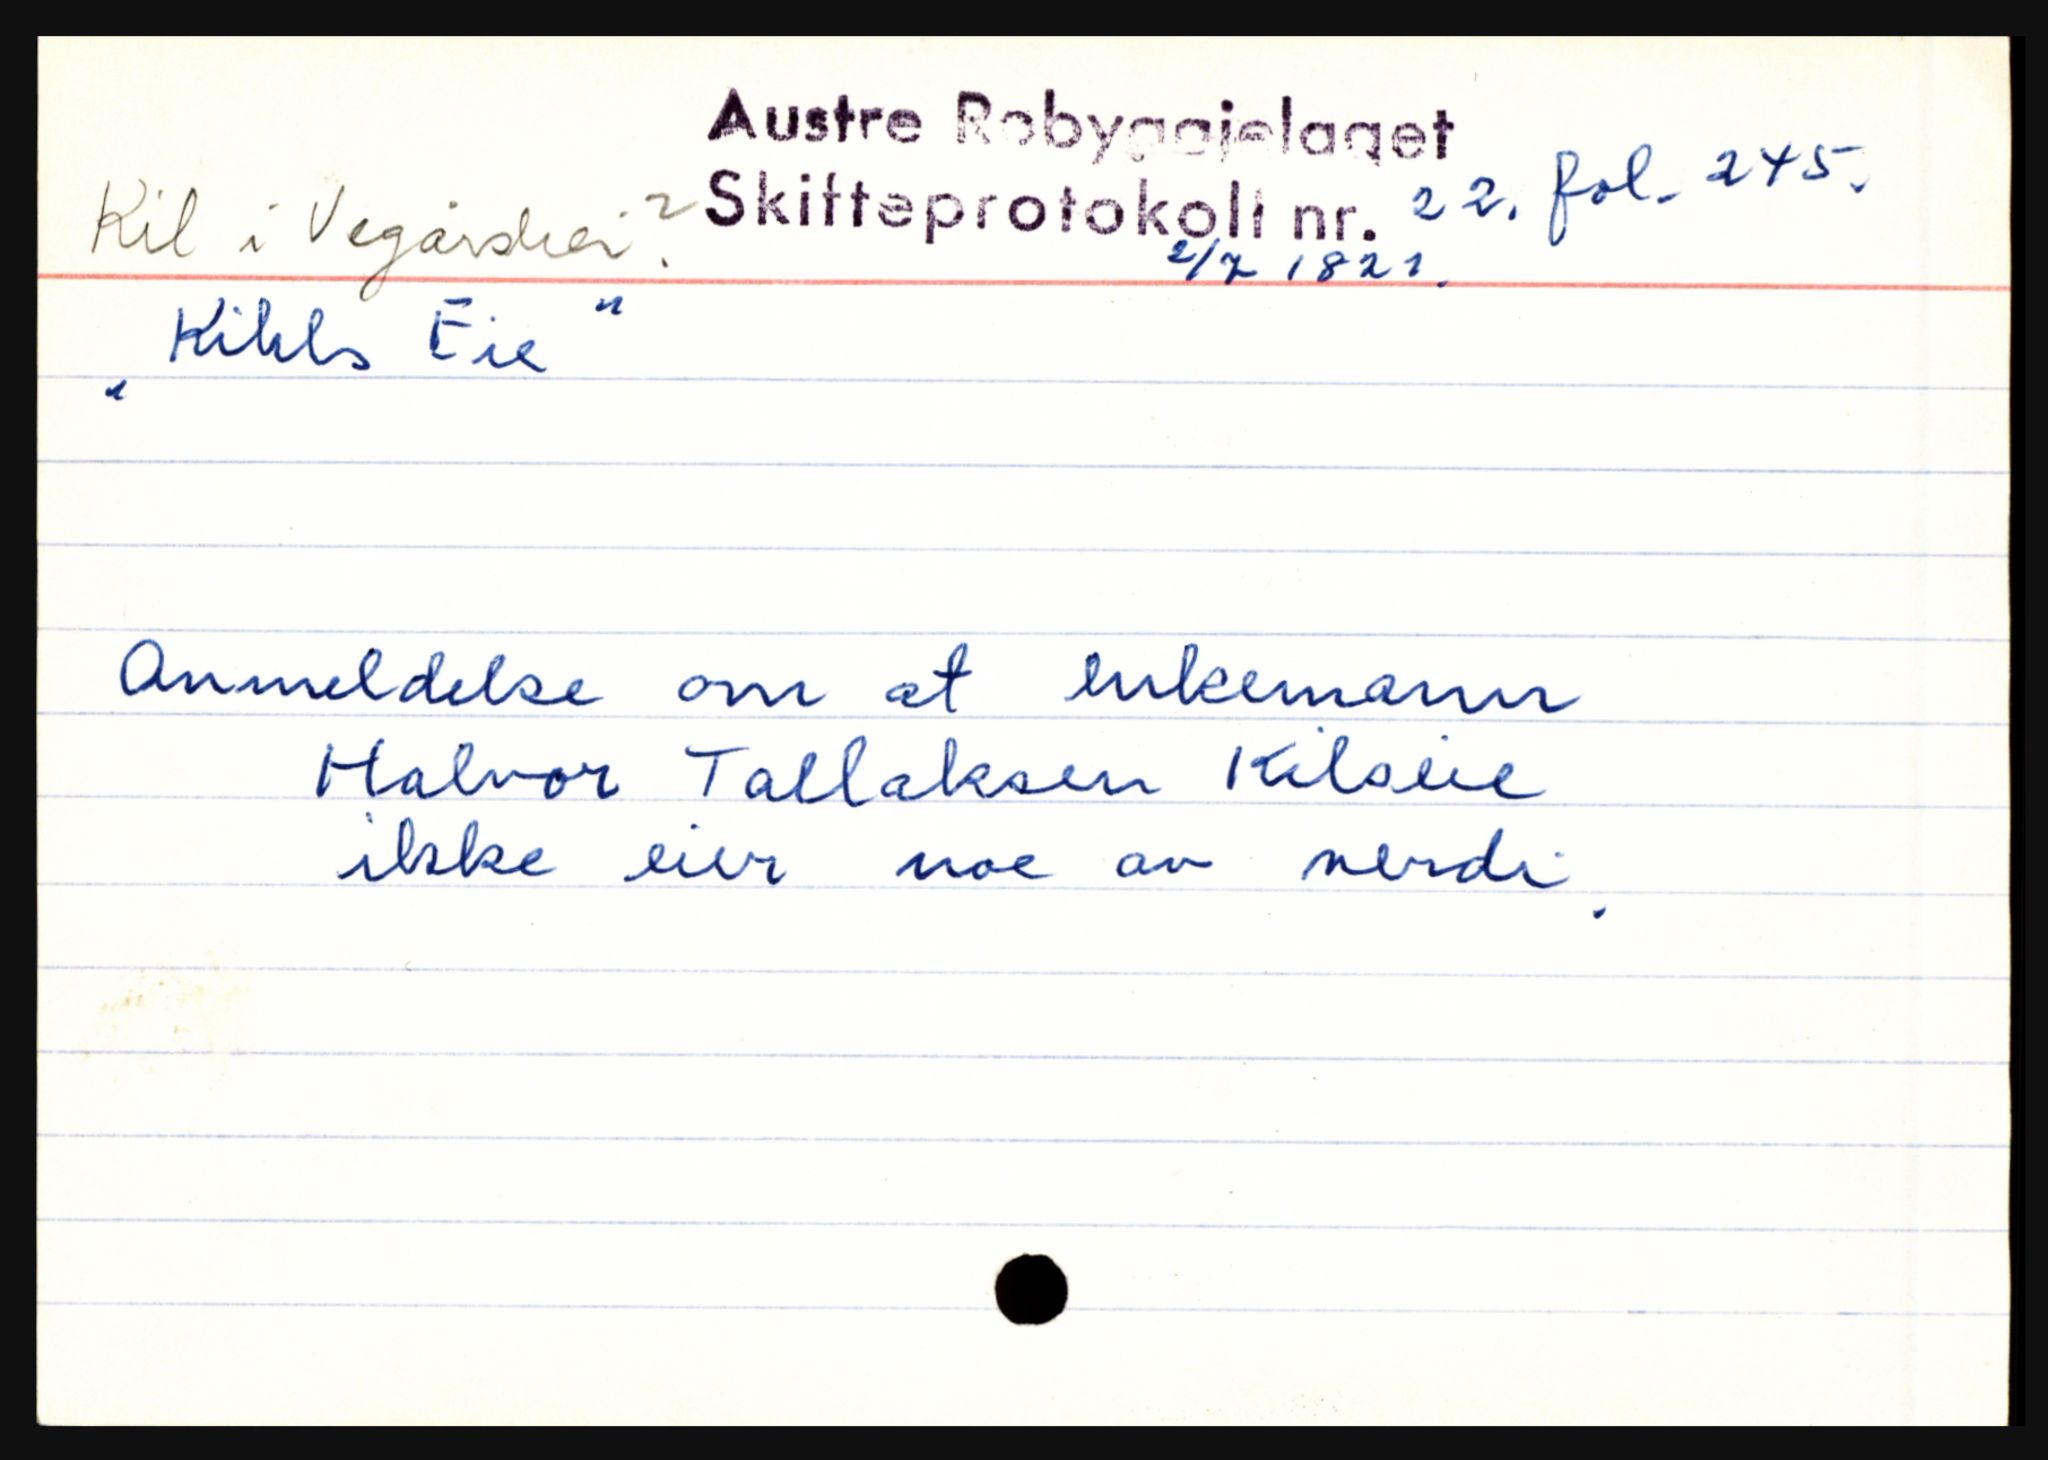 Austre Robyggjelaget
Kil i Vegårshei? Skifteprotokoll nr. 22. fol. 245.
2/7 1821.
"Kihls Eie"
Anmeldelse om at enkemann
Halvor Tallaksen Kilseie
ikke eier noe av verdi.